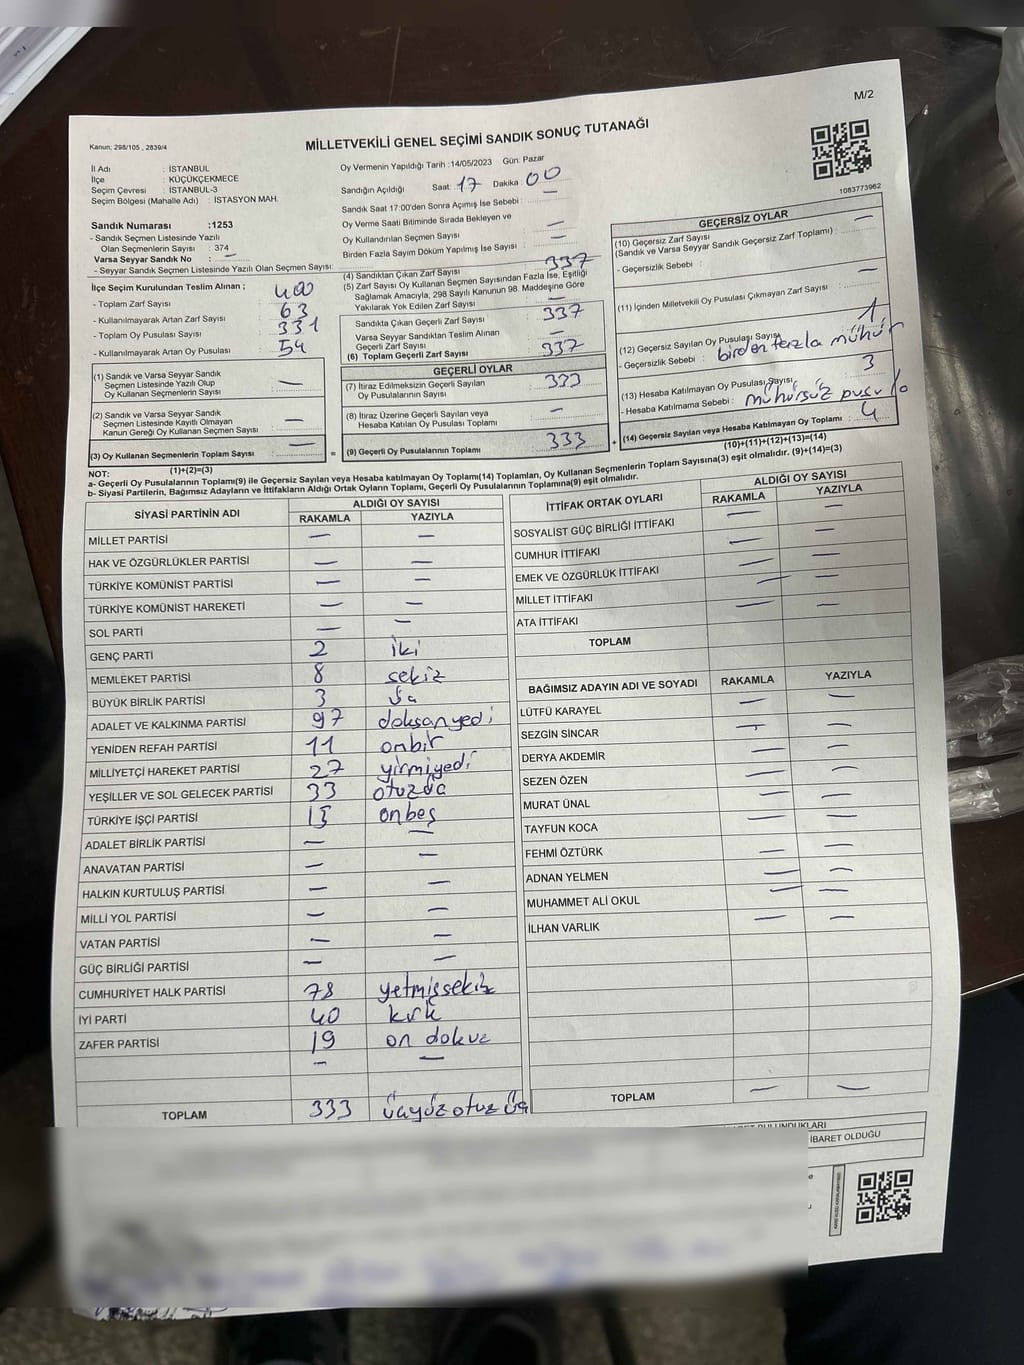 M/2
Kanun; 298/105 , 2839/4
MİLLETVEKİLİ GENEL SEÇİMİ SANDIK SONUÇ TUTANAĞI
İl Adı : İSTANBUL
İlçe : KÜÇÜKÇEKMECE
Seçim Çevresi : İSTANBUL-3
Seçim Bölgesi (Mahalle Adı) : İSTASYON MAH.
Sandık Numarası :1253
- Sandık Seçmen Listesinde Yazılı
Olan Seçmenlerin Sayısı : 374
Varsa Seyyar Sandık No : —
- Seyyar Sandık Seçmen Listesinde Yazılı Olan Seçmen Sayısı:
İlçe Seçim Kurulundan Teslim Alınan ;
- Toplam Zarf Sayısı 400
- Kullanılmayarak Artan Zarf Sayısı 63
- Toplam Oy Pusulası Sayısı 331
- Kullanılmayarak Artan Oy Pusulası 54
(1) Sandık ve Varsa Seyyar Sandık
Seçmen Listesinde Yazılı Olup
Oy Kullanan Seçmenlerin Sayısı —
(2) Sandık ve Varsa Seyyar Sandık
Seçmen Listesinde Kayıtlı Olmayan
Kanun Gereği Oy Kullanan Seçmen Sayısı —
(3) Oy Kullanan Seçmenlerin Toplam Sayısı —
(1)+(2)=(3)
Oy Vermenin Yapıldığı Tarih :14/05/2023 Gün: Pazar
Sandığın Açıldığı Saat: 17 Dakika : 00
Sandık Saat 17:00'den Sonra Açımış İse Sebebi : —
Oy Verme Saati Bitiminde Sırada Bekleyen ve
Oy Kullandırılan Seçmen Sayısı —
Birden Fazla Sayım Döküm Yapılmış İse Sayısı : —
(4) Sandıktan Çıkan Zarf Sayısı 337
(5) Zarf Sayısı Oy Kullanan Seçmen Sayısından Fazla İse, Eşitliği
Sağlamak Amacıyla, 298 Sayılı Kanunun 98. Maddesine Göre
Yakılarak Yok Edilen Zarf Sayısı —
Sandıkta Çıkan Geçerli Zarf Sayısı 337
Varsa Seyyar Sandıktan Teslim Alınan
Geçerli Zarf Sayısı —
(6) Toplam Geçerli Zarf Sayısı 337
GEÇERLİ OYLAR
(7) İtiraz Edilmeksizin Geçerli Sayılan
Oy Pusulalarının Sayısı 333
(8) İtiraz Üzerine Geçerli Sayılan veya
Hesaba Katılan Oy Pusulası Toplamı —
= (9) Geçerli Oy Pusulalarının Toplamı 333 +
1083773962
GEÇERSİZ OYLAR
(10) Geçersiz Zarf Sayısı —
(Sandık ve Varsa Seyyar Sandık Geçersiz Zarf Toplamı) :
- Geçersizlik Sebebi :
(11) İçinden Milletvekili Oy Pusulası Çıkmayan Zarf Sayısı —
(12) Geçersiz Sayılan Oy Pusulası Sayısı 1
- Geçersizlik Sebebi : birden fazla mühür
(13) Hesaba Katılmayan Oy Pusulası Sayısı 3
- Hesaba Katılmama Sebebi : mühürsüz pusula
(14) Geçersiz Sayılan veya Hesaba Katılmayan Oy Toplamı 4
(10)+(11)+(12)+(13)=(14)
NOT:
a- Geçerli Oy Pusulalarının Toplamı(9) ile Geçersiz Sayılan veya Hesaba katılmayan Oy Toplamı(14) Toplamları, Oy Kullanan Seçmenlerin Toplam Sayısına(3) eşit olmalıdır. (9)+(14)=(3)
b- Siyasi Partilerin, Bağımsız Adayların ve İttifakların Aldığı Ortak Oyların Toplamı, Geçerli Oy Pusulalarının Toplamına(9) eşit olmalıdır.
SİYASİ PARTİNİN ADI ALDIĞI OY SAYISI
RAKAMLA YAZIYLA
MİLLET PARTİSİ — —
HAK VE ÖZGÜRLÜKLER PARTİSİ — —
TÜRKİYE KOMÜNİST PARTİSİ — —
TÜRKİYE KOMÜNİST HAREKETİ — —
SOL PARTİ — —
GENÇ PARTİ 2 iki
MEMLEKET PARTİSİ 8 sekiz
BÜYÜK BİRLİK PARTİSİ 3 üç
ADALET VE KALKINMA PARTİSİ 97 doksanyedi
YENİDEN REFAH PARTİSİ 11 onbir
MİLLİYETÇİ HAREKET PARTİSİ 27 yirmiyedi
YEŞİLLER VE SOL GELECEK PARTİSİ 33 otuzüç
TÜRKİYE İŞÇİ PARTİSİ 15 onbeş
ADALET BİRLİK PARTİSİ — —
ANAVATAN PARTİSİ — —
HALKIN KURTULUŞ PARTİSİ — —
MİLLİ YOL PARTİSİ — —
VATAN PARTİSİ — —
GÜÇ BİRLİĞİ PARTİSİ — —
CUMHURİYET HALK PARTİSİ 78 yetmişsekiz
İYİ PARTİ 40 kırk
ZAFER PARTİSİ 19 on dokuz
— —
TOPLAM 333 üçyüz otuz üç
İTTİFAK ORTAK OYLARI ALDIĞI OY SAYISI
RAKAMLA YAZIYLA
SOSYALİST GÜÇ BİRLİĞİ İTTİFAKI — —
CUMHUR İTTİFAKI — —
EMEK VE ÖZGÜRLÜK İTTİFAKI — —
MİLLET İTTİFAKI — —
ATA İTTİFAKI — —
TOPLAM
BAĞIMSIZ ADAYIN ADI VE SOYADI RAKAMLA YAZIYLA
LÜTFÜ KARAYEL — —
SEZGİN SİNCAR — —
DERYA AKDEMİR — —
SEZEN ÖZEN — —
MURAT ÜNAL — —
TAYFUN KOCA — —
FEHMİ ÖZTÜRK — —
ADNAN YELMEN — —
MUHAMMET ALİ OKUL — —
İLHAN VARLIK — —
TOPLAM — —
BULUNDUKLARI
İBARET OLDUĞU